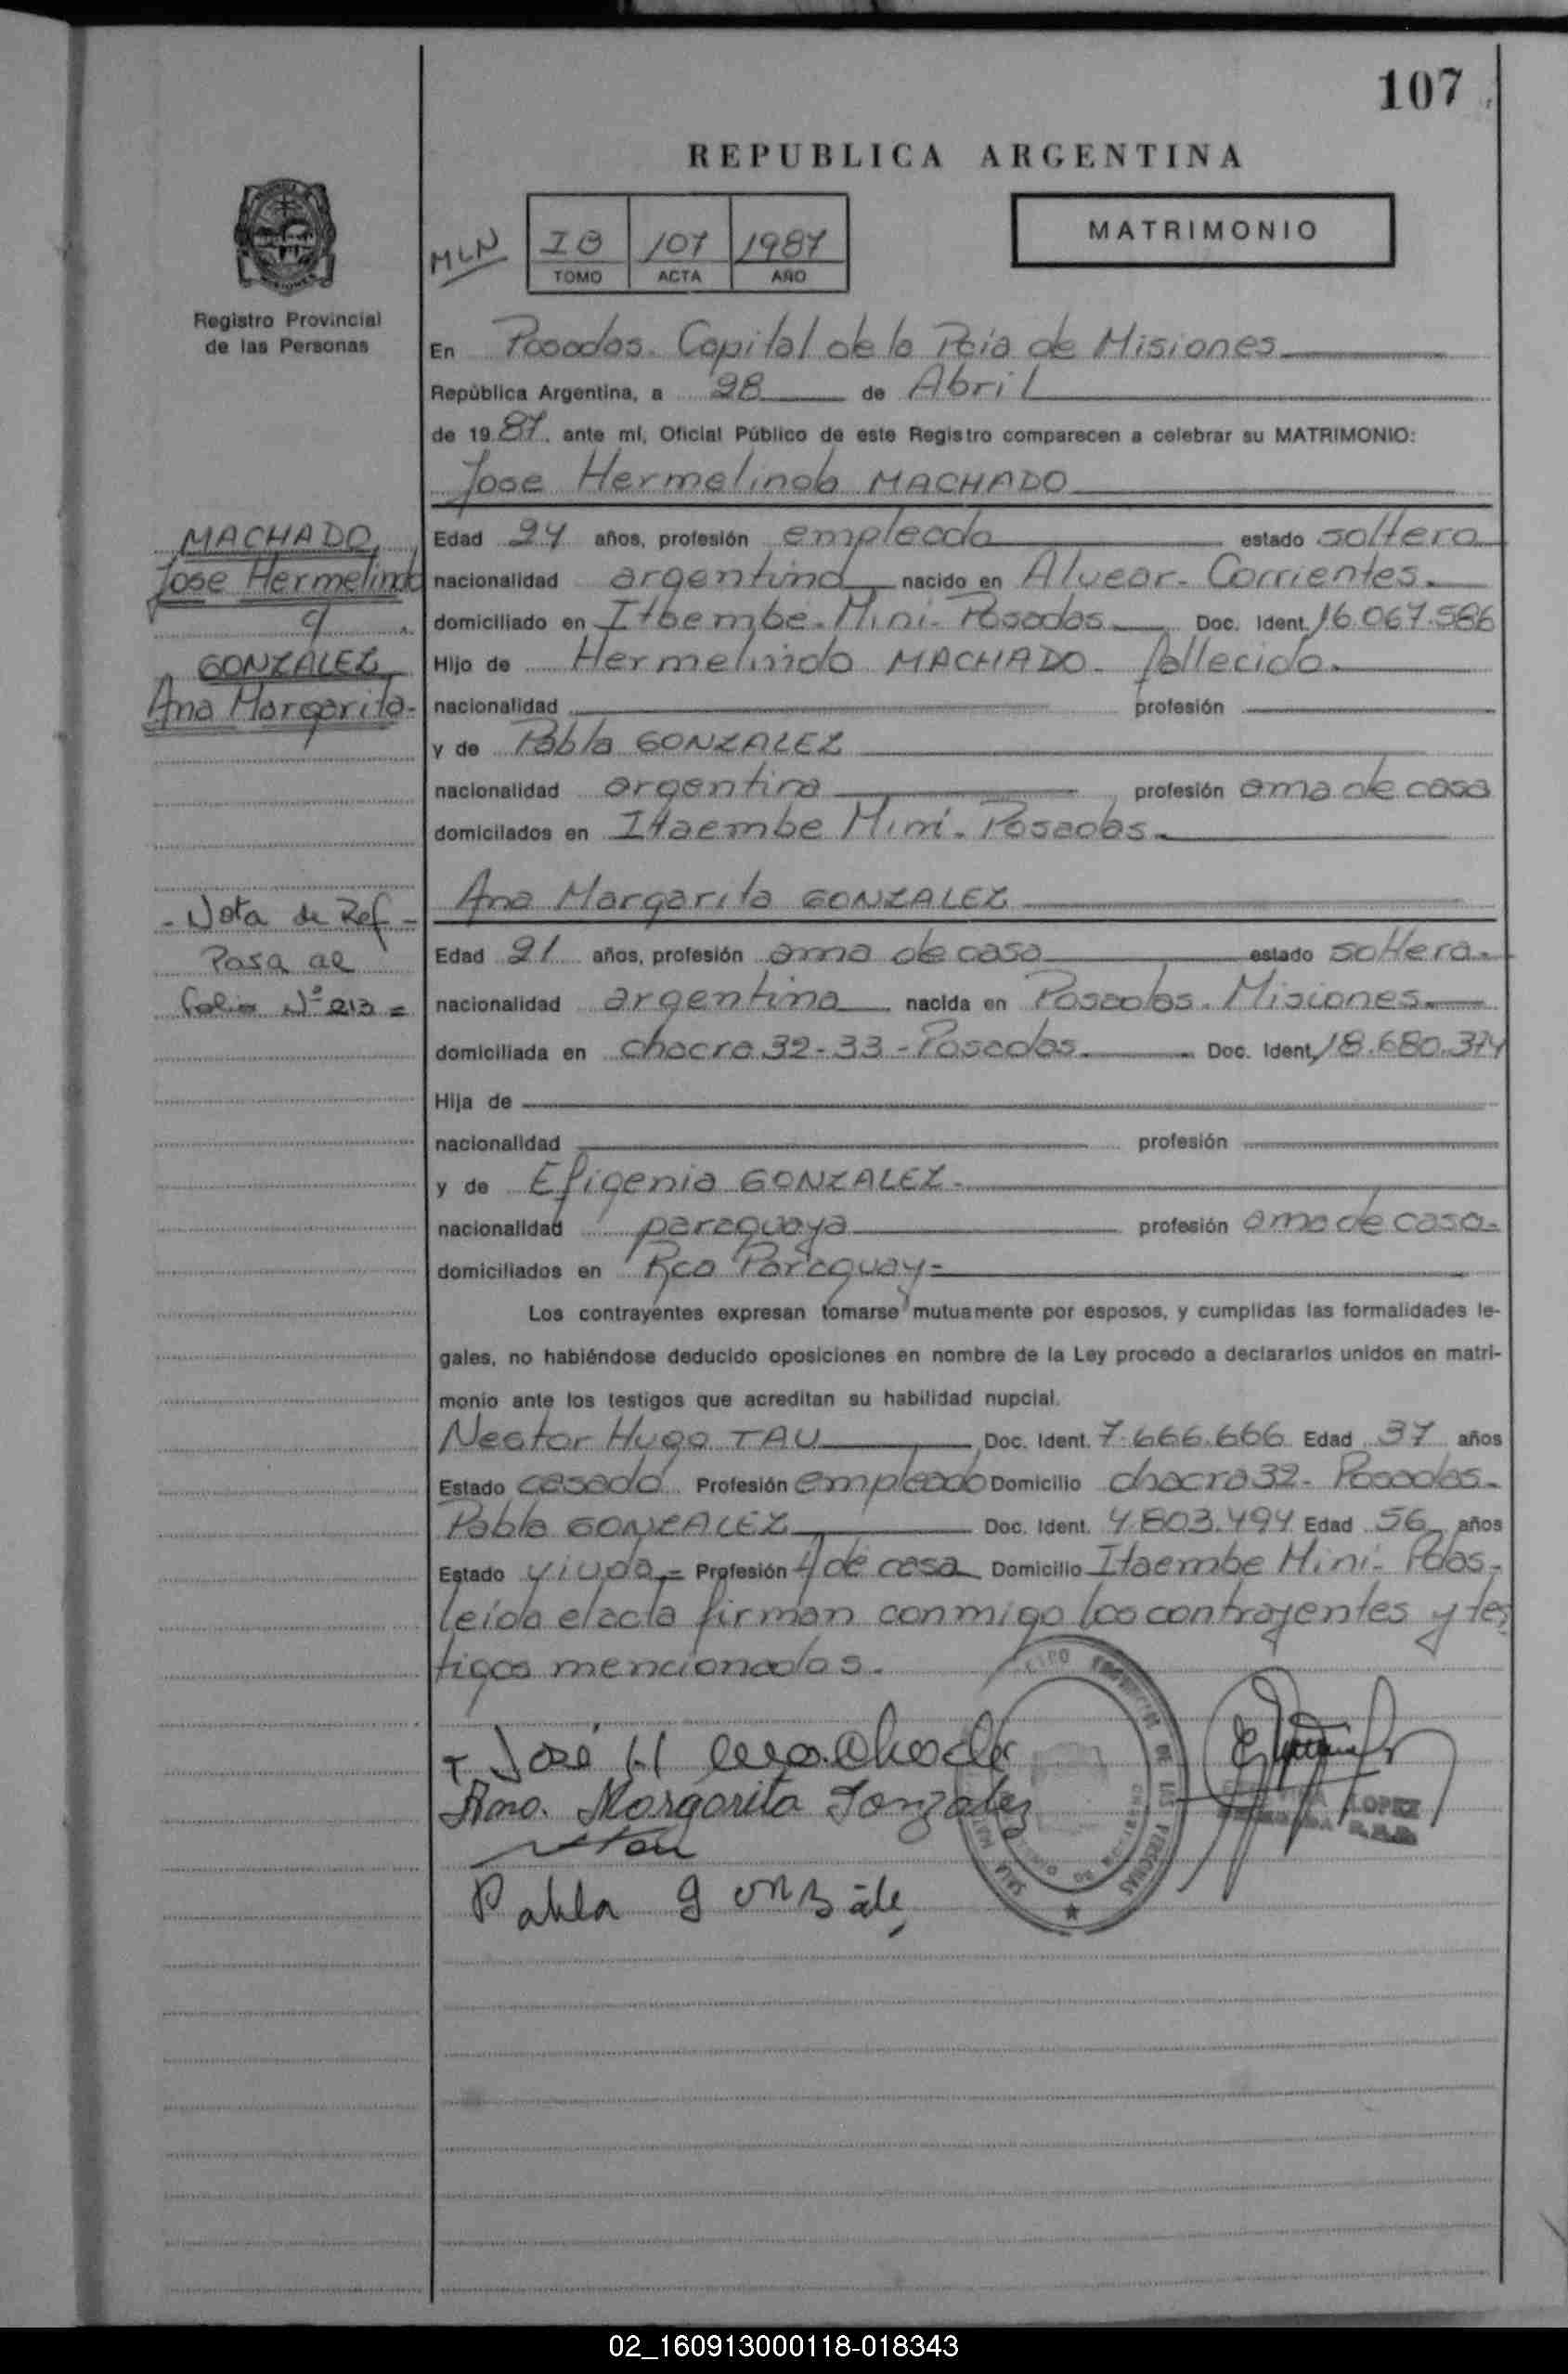 107
REPUBLICA ARGENTINA
MLN
IB 107 1987
TOMO ACTA AÑO
MATRIMONIO
Registro Provincial
de las Personas
En Posadas. Capital de la Pcia de Misiones
República Argentina, a 28 de Abril
de 1987 ante mí, Oficial Público de este Registro comparecen a celebrar su MATRIMONIO:
Jose Hermelindo MACHADO
MACHADO,
Jose Hermelindo
y
GONZALEZ
Ana Margarita-
Edad 24 años, profesión empleado estado soltero
nacionalidad argentina nacido en Alvear- Corrientes.
domiciliado en Itaembe-Mini-Posadas. Doc. Ident. 16.067.586
Hijo de Hermelindo MACHADO- fallecido.
nacionalidad profesión
y de Pabla GONZALEZ
nacionalidad argentina profesión ama de casa
domicilados en Itaembe Mini. Posadas.
Ana Margarita GONZALEZ
- Nota de Ref -
Pasa al
folio Nº 213 =
Edad 21 años, profesión ama de casa estado soltera.
nacionalidad argentina nacida en Posadas. Misiones.
domiciliada en chacra 32-33-Posadas. Doc. Ident. 18.680.374
Hija de
nacionalidad profesión
y de Efigenia GONZALEZ-
nacionalidad paraguaya profesión ama de casa-
domiciliados en Rca Paraguay-
Los contrayentes expresan tomarse mutuamente por esposos, y cumplidas las formalidades le-
gales, no habiéndose deducido oposiciones en nombre de la Ley procedo a declararlos unidos en matri-
monio ante los testigos que acreditan su habilidad nupcial.
Nestor Hugo TAU Doc. Ident. 7.666.666 Edad 37 años
Estado casado Profesión empleado Domicilio chacra 32- Posadas-
Pabla GONZALEZ Doc. Ident. 4.803.494 Edad 56 años
Estado viuda- Profesión A de casa Domicilio Itaembe Mini- Pdas-
leida el acta firman conmigo los contrayentes y tes
tigos mencionados.
José H Machado
Ana. Margarita Gonzalez
Pabla gonzále
LOPEZ
02_160913000118-018343